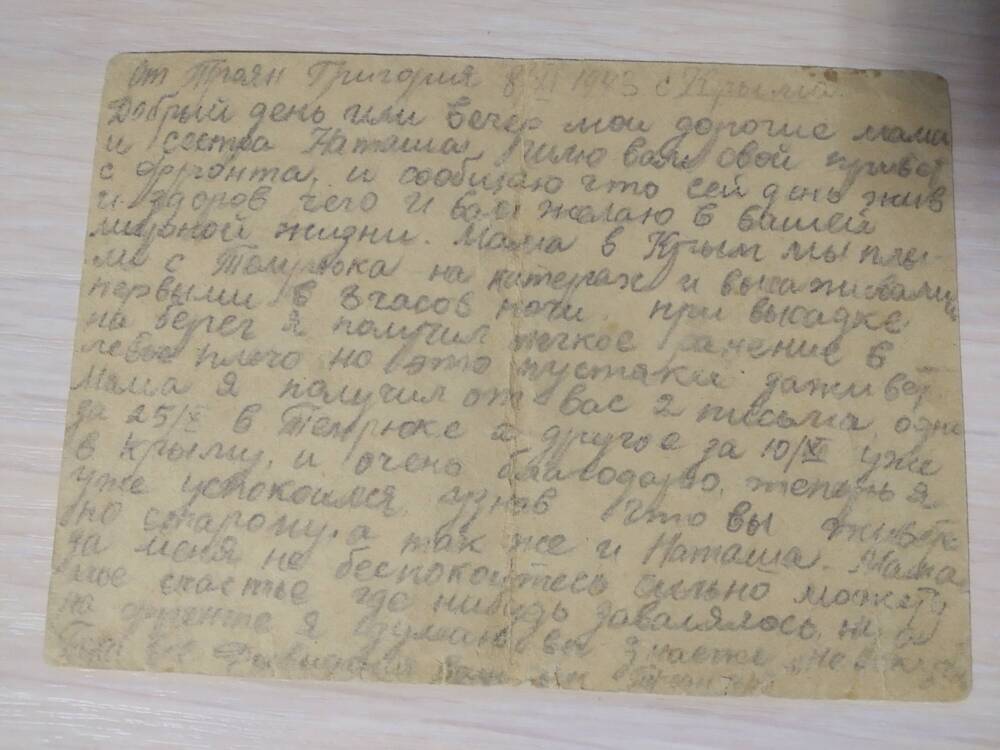 От Троян Григория 8 XI 1943 с Крыма.
Добрый день или вечер мои дорогие мама
и сестра Наташа, шлю вам свой привет
с фронта, и сообщаю что сей день жив
и здоров чего и вам желаю в вашей
мирной жизни. Мама в Крым мы плы-
ли с Темрюка на катерах и высаживались
первыми в 3 часов ночи, при высадке
на берег я получил легкое ранение в
левое плечо но это пустаки заживет.
Мама я получил от вас 2 письма, одно
за 25/X в Темрюке а другое за 10/XI уже
в Крыму, и очень благодарю, теперь я
уже успокоился узнав что вы живете
по старому, а так же и Наташа. Мама
за меня не беспокойтесь сильно может
мое счастье где нибудь завалялось,
на фронте я думаю вы знаете